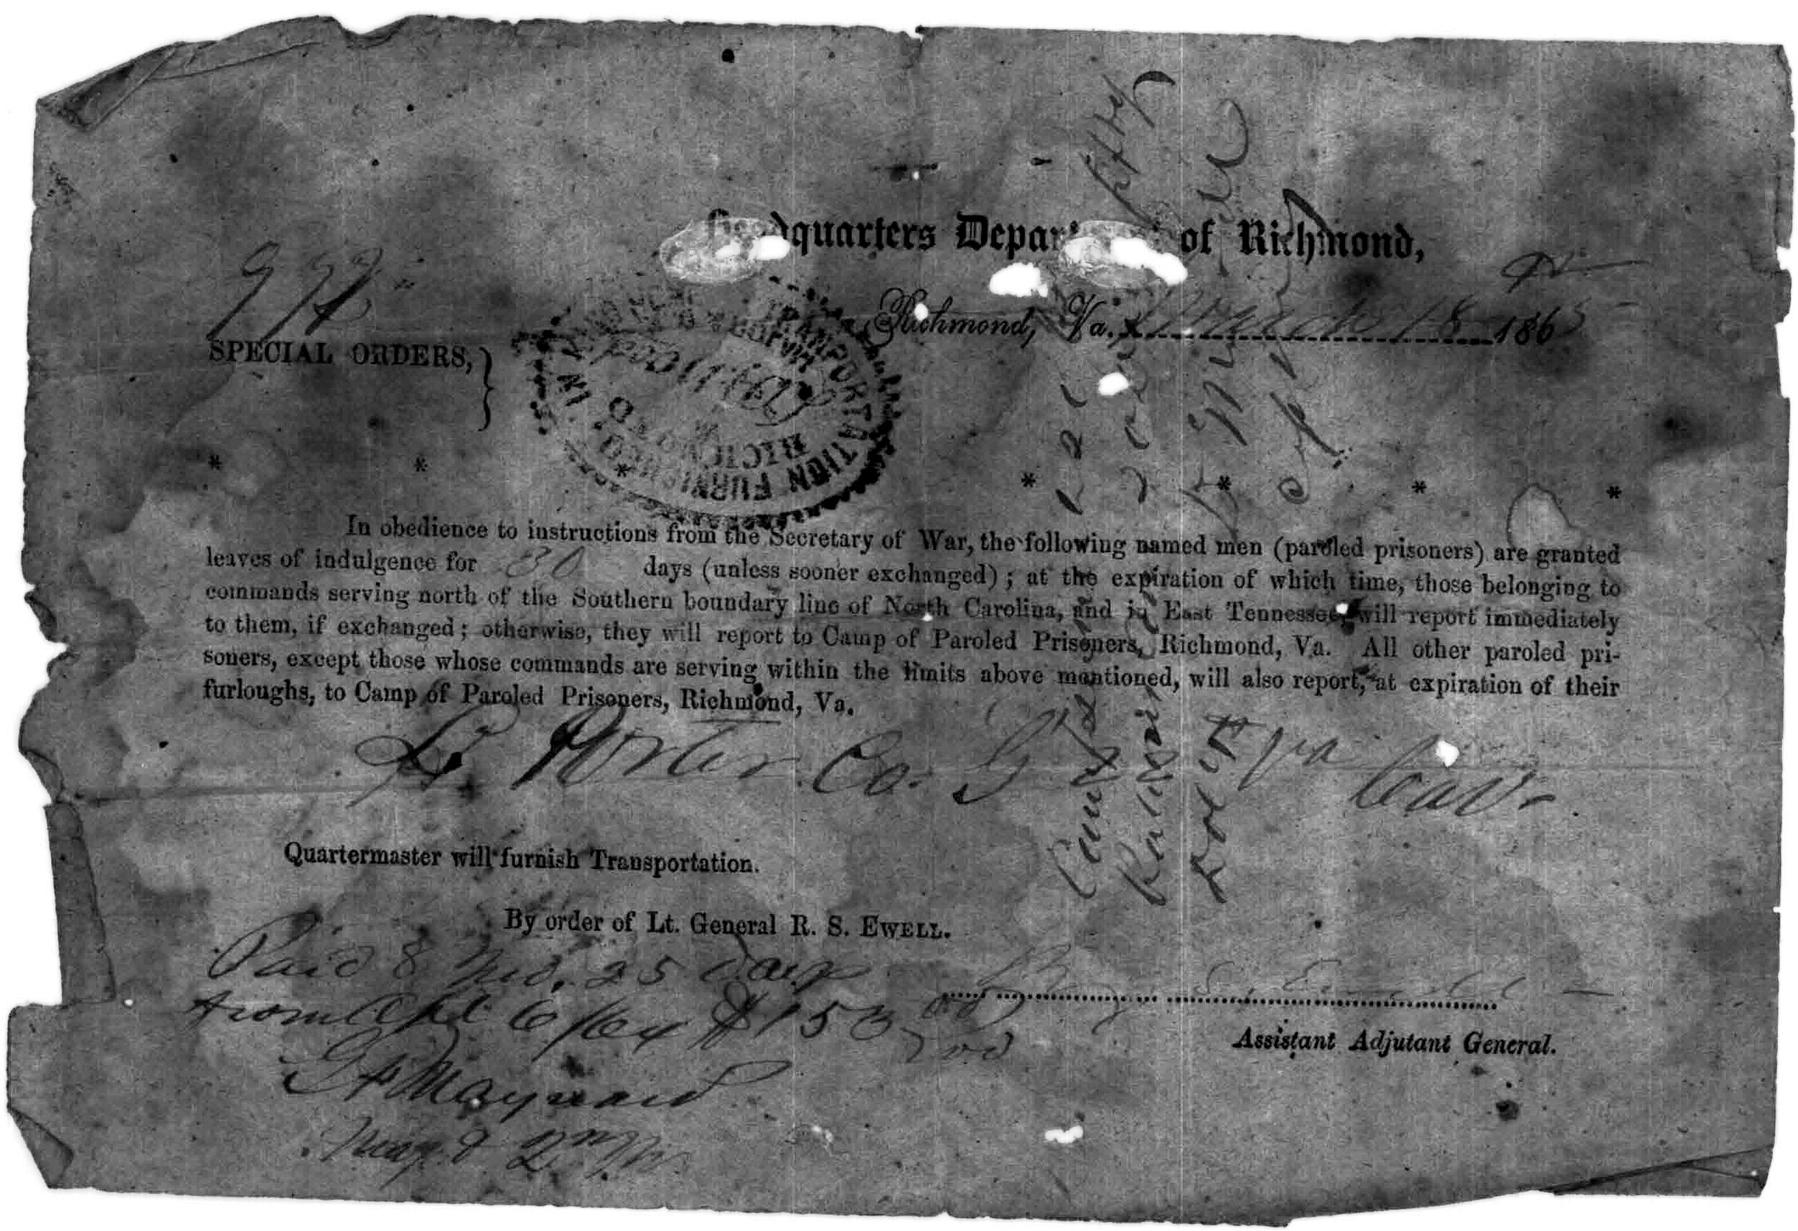 Headquarters Department of Richmond,
Richmond, Va., March 18 1865
SPECIAL ORDERS,}
TRANSPORTATION FURNISHED IN
* * * * * * *
In obedience to instructions from the Secretary of War, the following named men (paroled prisoners) are granted
leaves of indulgence for 30 days (unless sooner exchanged); at the expiration of which time, those belonging to
commands serving north of the Southern boundary line of North Carolina, and in East Tennessee, will report immediately
to them, if exchanged; otherwise, they will report to Camp of Paroled Prisoners, Richmond, Va. All other paroled pri-
soners, except those whose commands are serving within the limits above mentioned, will also report, at expiration of their
furloughs, to Camp of Paroled Prisoners, Richmond, Va.
Porter Co. G Va Cav.
Quartermaster will furnish Transportation.
By order of Lt. General R. S. EWELL.
Paid 8 Mo. 25 Days
from Apl 6/64 $153
Assistant Adjutant General.
Maynard
Maj & Qm